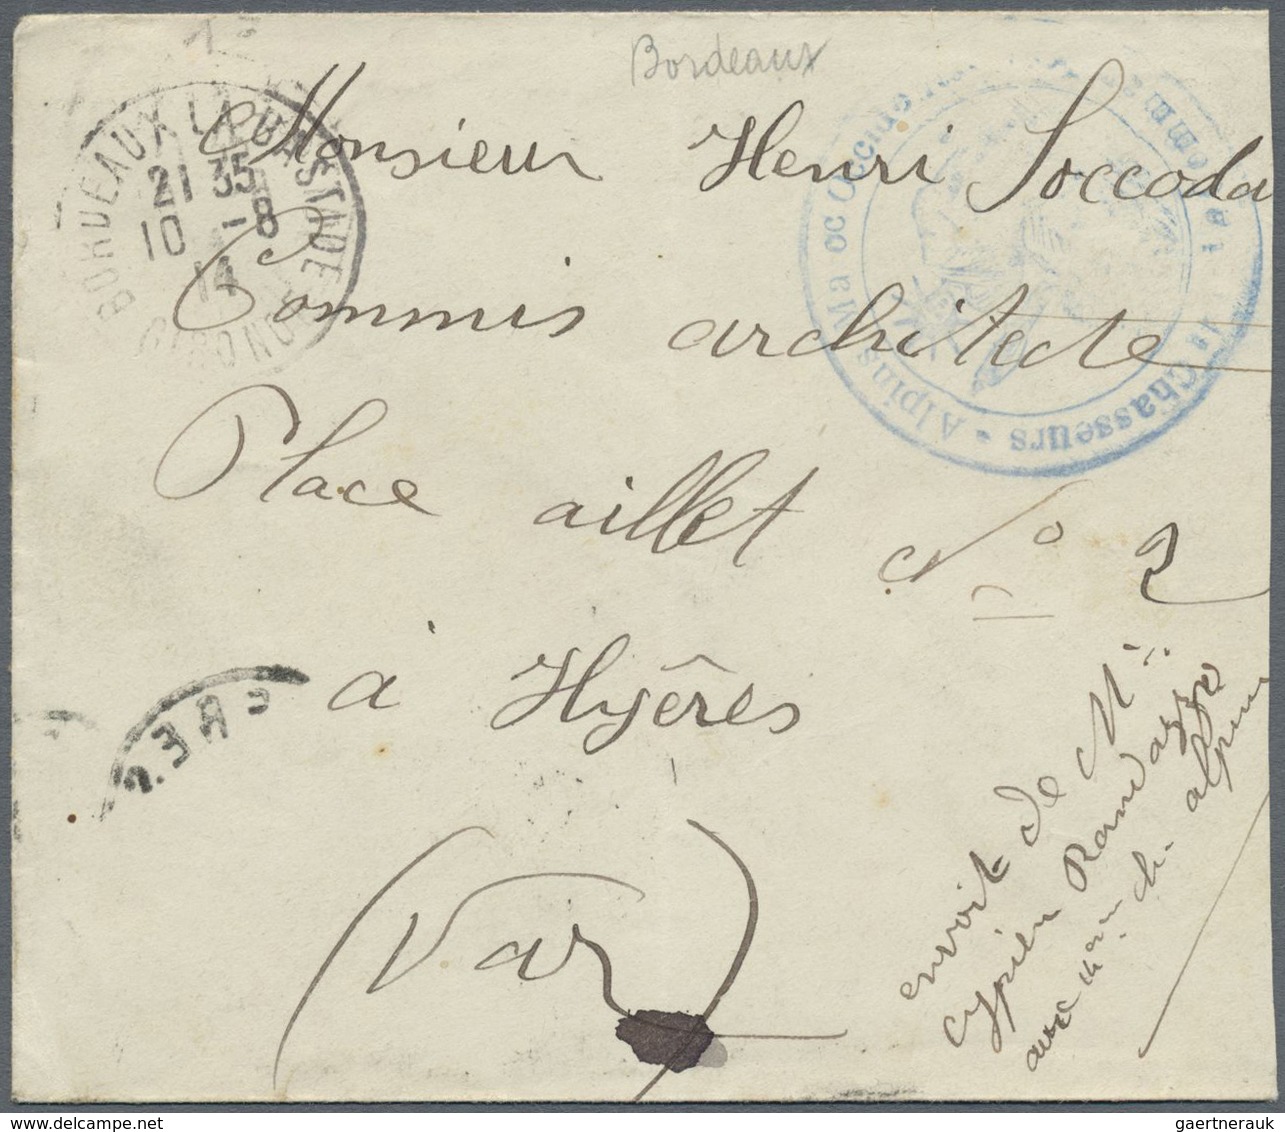 Bordeaux
BORDEAUX LA BASTIDE
21 35
10 -8
14
GIRONDE
Maroc Occidental
Chasseurs * Alpins
Monsieur Henri Soccoda
Commis architecte
Place aillet No 2
à Hyères
(Var)
envoit de Mr
cypien Randazzo
alpin
gaertnerauk